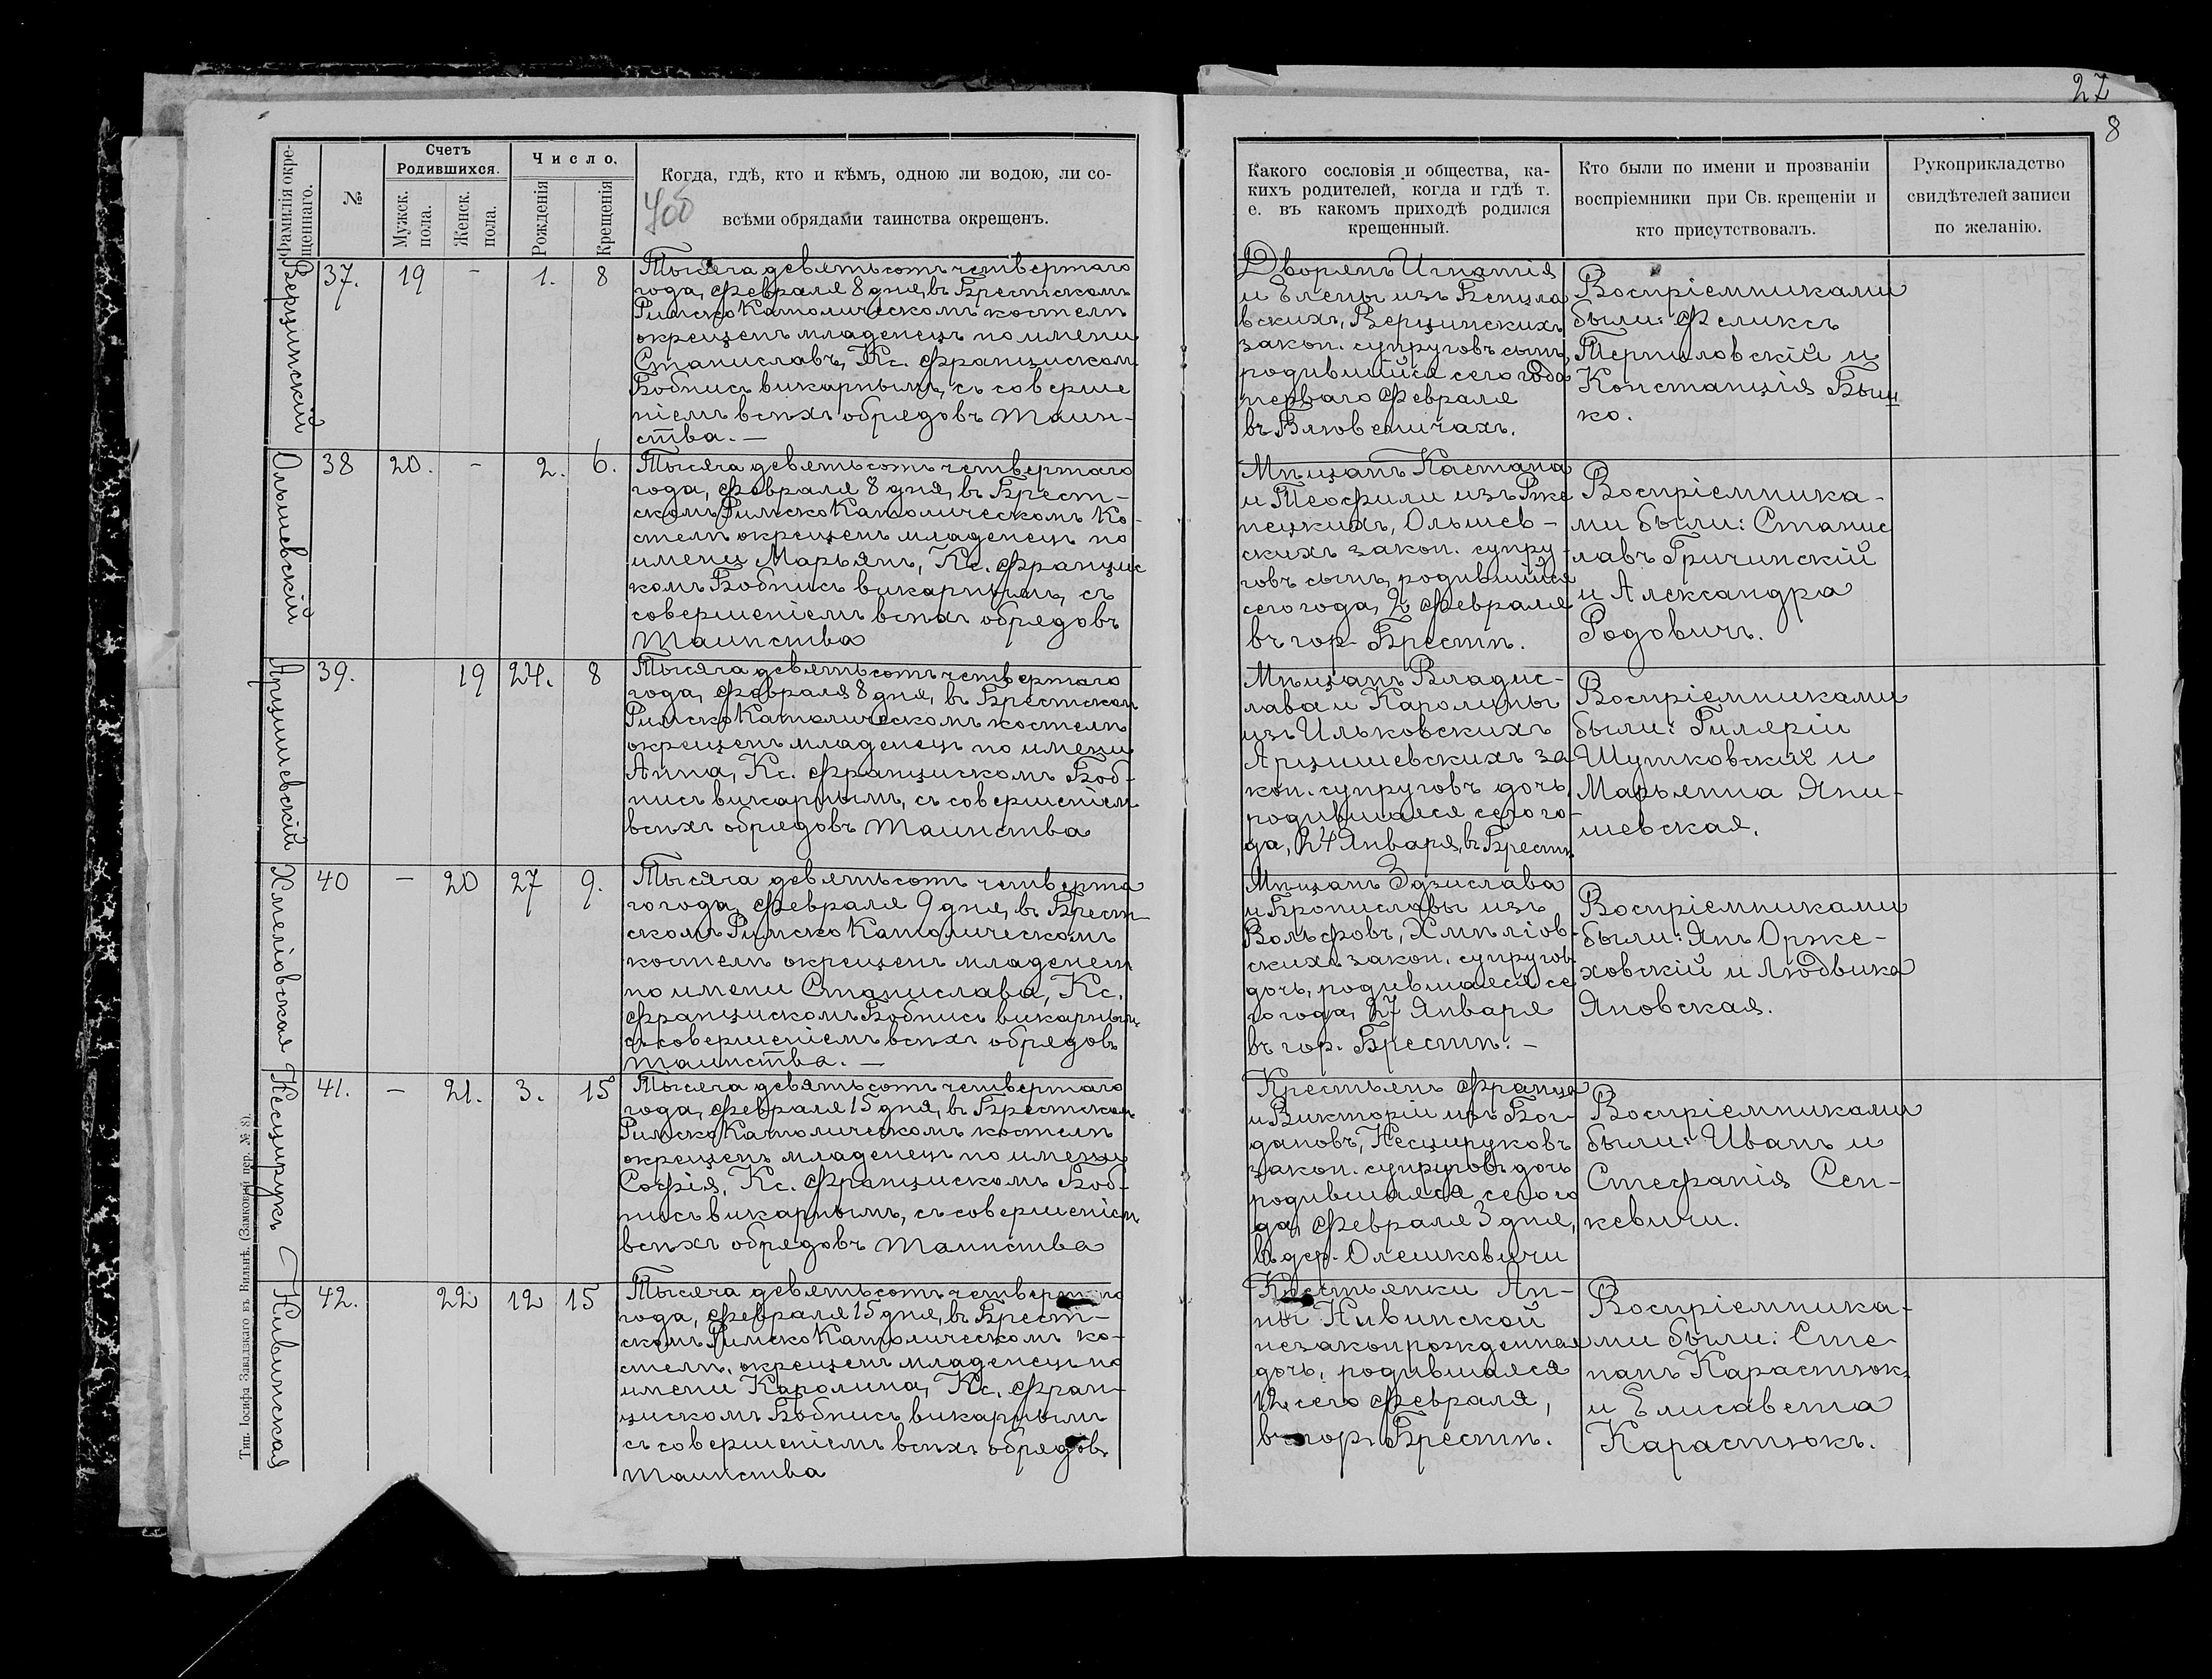 27
8
Фамилія окре-
щеннаго.
№
Счетъ
Родившихся.
Мужск.
пола.
Женск.
пола.
Число.
Рожденія
Крещенія
Когда, гдѣ, кто и кѣмъ, одною ли водою, ли со-
всѣми обрядами таинства окрещенъ.
Какого сословія и общества, ка-
кихъ родителей, когда и гдѣ т.
е. въ какомъ приходѣ родился
крещенный.
Кто были по имени и прозваніи
воспріемники при Св. крещеніи и
кто присутствовалъ.
Рукоприкладство
свидѣтелей записи
по желанію.
Верцинскій
37. 19 - 1. 8
Тысяча девятьсотъ четвертаго
года, Февраля 8 дня, въ Брестскомъ
Римско Католическомъ костелѣ
окрещенъ младенецъ по имени
Станиславъ, Кс. Францискомъ
Бобнисъ викарнымъ, съ соверше
ніемъ всѣхъ обрядовъ Таин-
ства. —
Дворянъ Игнатія
и Елены изъ Бенцла
вскихъ, Верцинскихъ
закон. супруговъ сынъ,
родившійся сего года
перваго Февраля
въ Влювеничахъ.
Воспріемниками
были: Феликсъ
Терпиловскій и
Констанція Быш
ко.
Ольшевскій
38 20. - 2. 6.
Тысяча девятьсотъ четвертаго
года, Февраля 8 дня, въ Брест-
скомъ Римско Католическомъ Ко-
стелѣ окрещенъ младенецъ по
имени Марьянъ, Кс. Францис
комъ Бобнисъ викарнымъ, съ
совершеніемъ всѣхъ обрядовъ
Таинства
Мѣщанъ Каетана
и Теофили изъ Рже
пецкихъ, Ольшев-
скихъ закон. супру-
говъ сынъ, родившійся
сего года, 2 Февраля
въ гор. Брестѣ.
Воспріемника-
ми были: Станис
лавъ Гричинскій
и Александра
Родовичъ.
Арцишевскій
39. 19 24. 8
Тысяча девятьсотъ четвертаго
года, Февраля 8 дня, въ Брестском
Римско Католическомъ костелѣ
окрещенъ младенецъ по имени
Анна, Кс. Францискомъ Боб-
нисъ викарнымъ, съ совершеніем
всѣхъ обрядовъ Таинства
Мѣщанъ Владис-
лава и Каролины
изъ Ильковскихъ
Арцишевскихъ за
кон. супруговъ дочь,
родившаяся сего го-
да, 24 Января, въ Брестѣ
Воспріемниками
были: Гилярій
Шутковскій и
Марьянна Яни-
шевская.
Хмеліовская
40 — 20 27 9.
Тысяча девятьсотъ четверта
го года, Февраля 9 дня, въ Брест-
скомъ Римско Католическомъ
костелѣ окрещенъ младенецъ
по имени Станислава, Кс.
Францискомъ Бобнисъ викарнымъ
съ совершеніемъ всѣхъ обрядовъ
таинства. —
Мѣщанъ Здзислава
и Брониславы изъ
Вольфовъ, Хмѣліов-
скихъ закон. супругов
дочь, родившаяся се
го года, 27 Января
въ гор. Брестѣ. -
Воспріемниками
были: Янъ Орже-
ховскій и Людвика
Яновская.
Несцирукъ
41. — 21. 3. 15
Тысяча девятьсотъ четвертаго
года, Февраля 15 дня, въ Брестском
Римско Католическомъ костелѣ
окрещенъ младенецъ по имени
Софія, Кс. Францискомъ Боб-
нисъ викарнымъ, съ совершеніем
всѣхъ обрядовъ Таинства
Крестьянъ Франца
и Викторіи изъ Бог-
дановъ, Несцируковъ
закон. супруговъ дочь
родившаяся сего го
да, Февраля 3 дня,
въ дер. Олешковичи
Воспріемниками
были: Иванъ и
Стефанія Сен-
кевичи.
Нивинская
42. 22 12 15
Тысяча девятьсотъ четвертаго
года, Февраля 15 дня, въ Брест-
скомъ Римско Католическомъ ко-
стелѣ, окрещенъ младенецъ по
имени Каролина, Кс. Фран-
цискомъ Бобнисъ викарнымъ
съ совершеніемъ всѣхъ обрядовъ
Таинства
Крестьянки Ан-
ны Нивинской
незаконрожденная
дочь, родившаяся
12 сего Февраля,
въ гор. Брестѣ.
Воспріемника-
ми были: Сте-
панъ Карастюкъ
и Елисавета
Карастюкъ.
Тип. Іосифа Завадзкаго въ Вильнѣ. (Замковый пер. № 8).